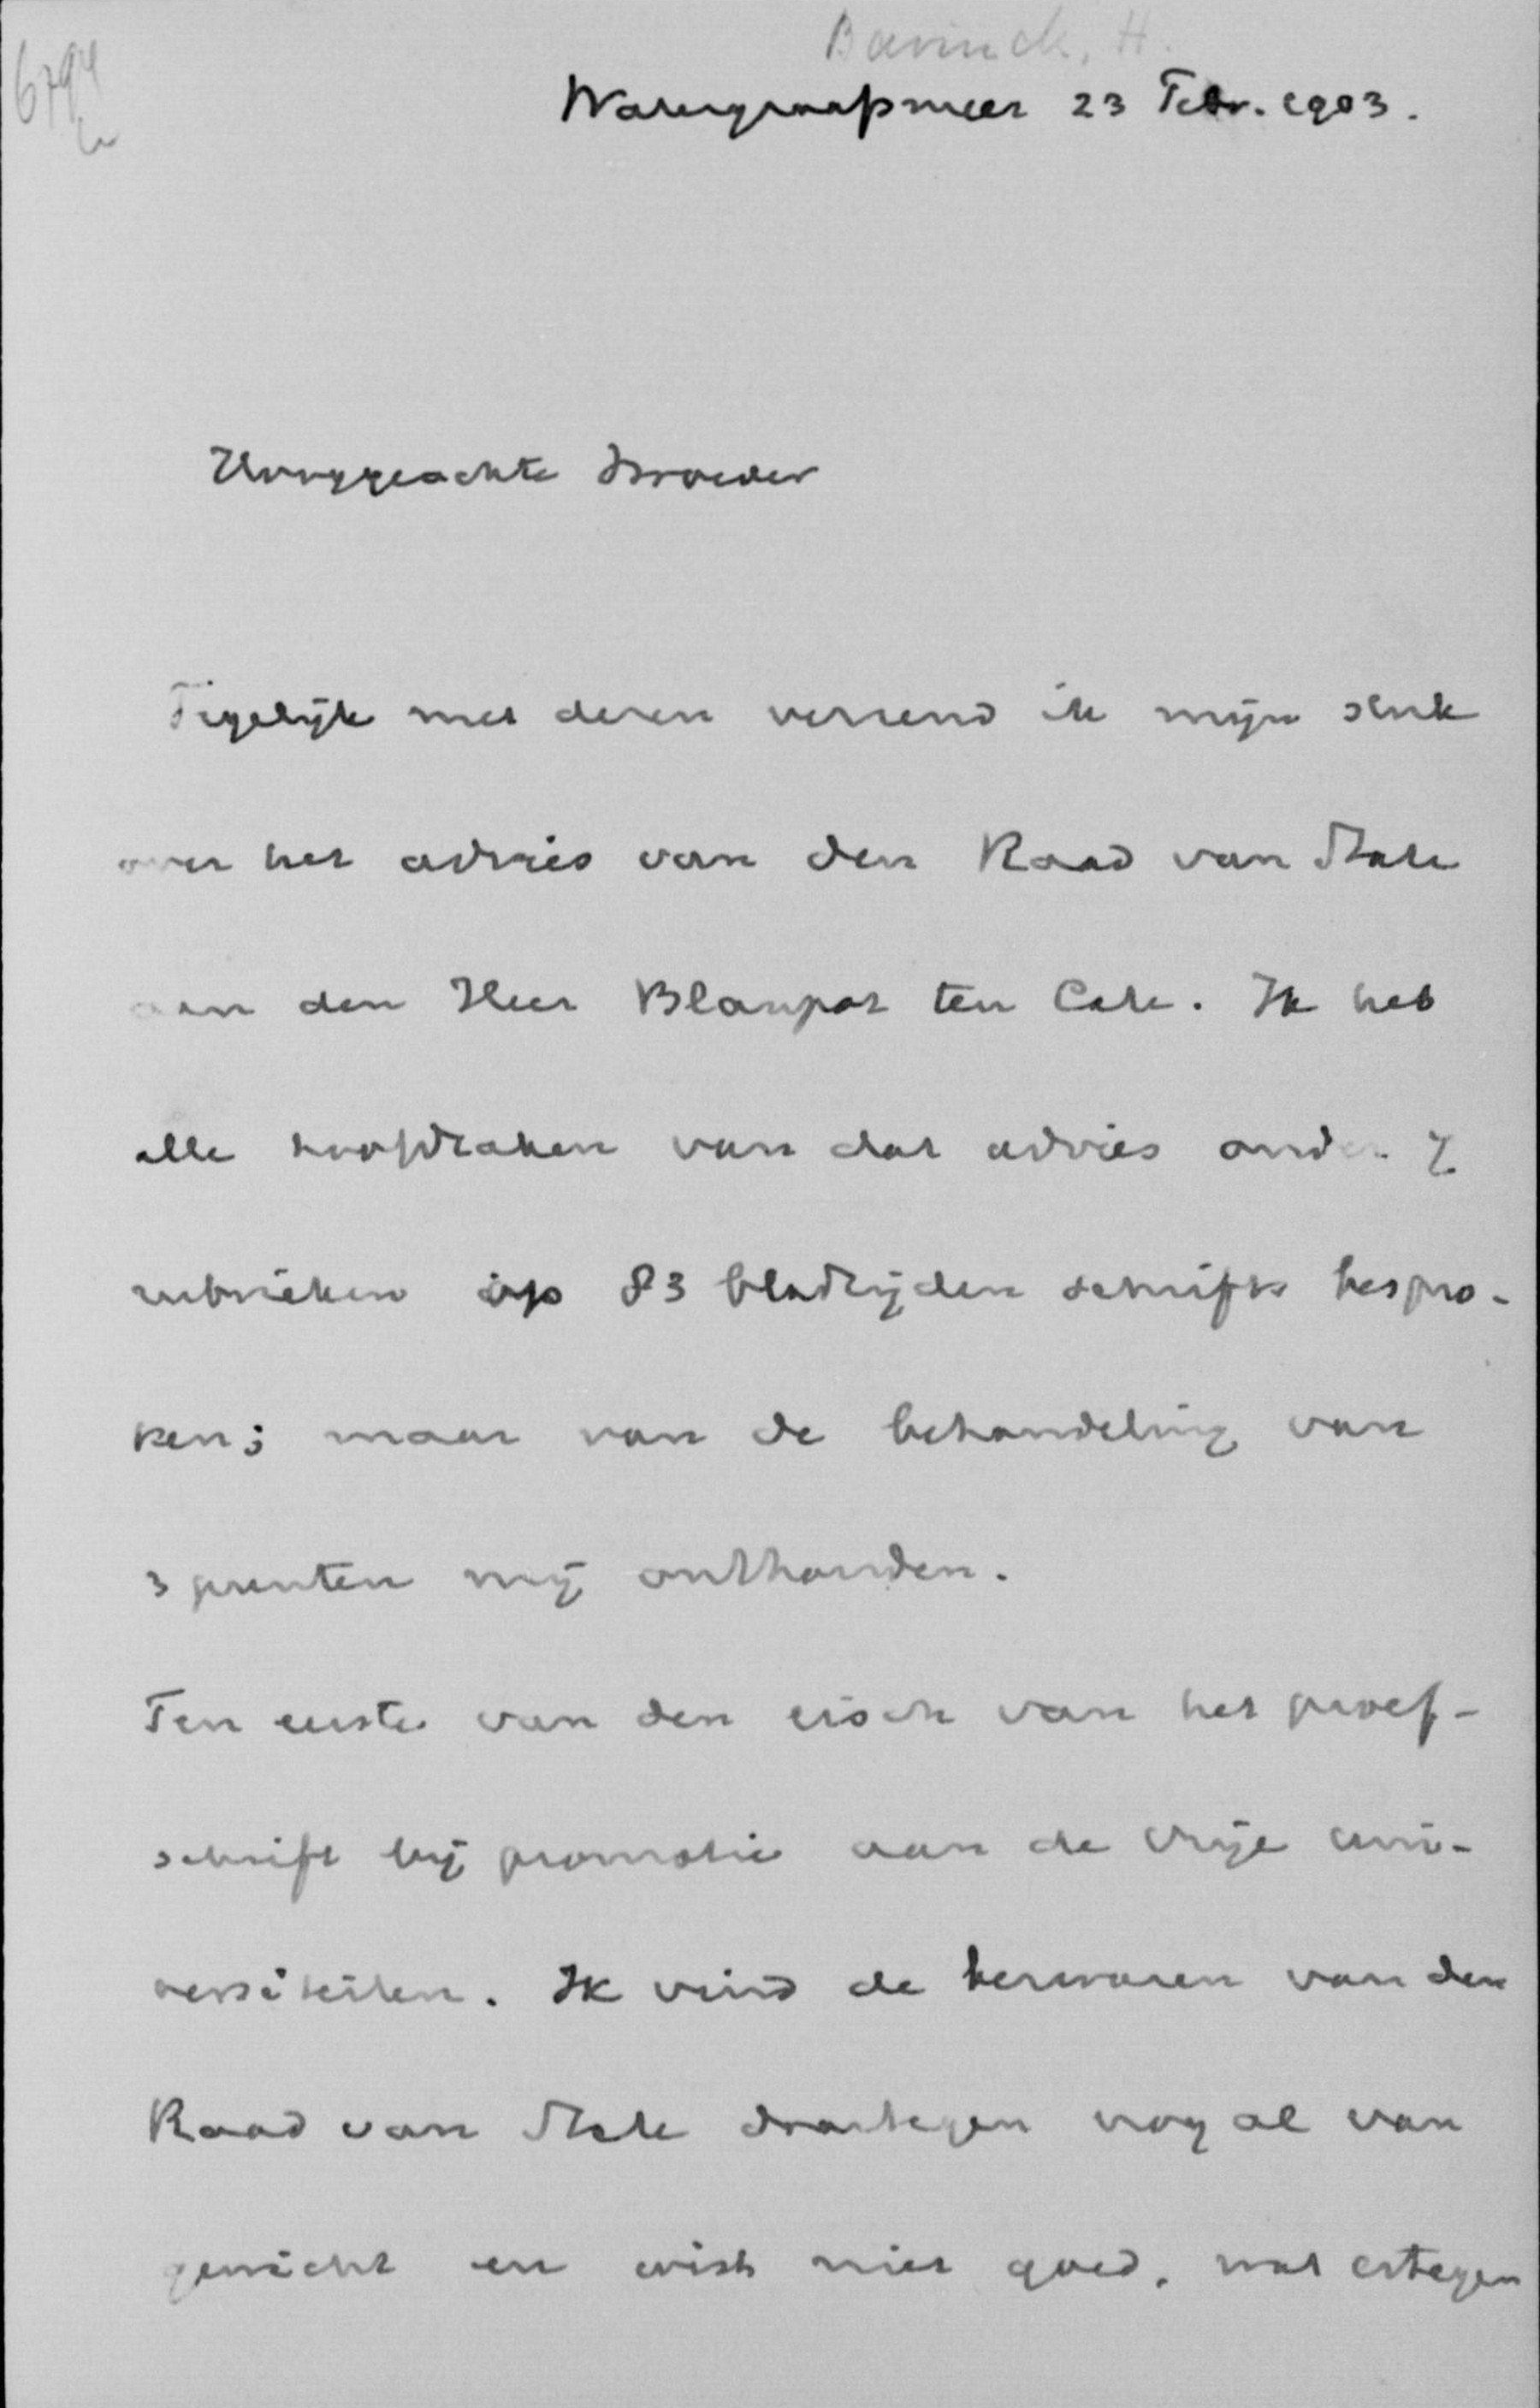 Bavinck, H.
6794
Watergraafsmeer 23 Febr. 1903.
Hooggeachte Broeder
Tegelijk met dezen verzend ik mijn stuk
over het advies van den Raad van State
aan den Heer Blaupot ten Cate. Ik heb
alle hoofdzaken van dat advies onder 7
rubrieken op 83 bladzijden schrifts bespro-
ken; maar van de behandeling van
3 punten mij onthouden.
Ten eerste van den eisch van het proef-
schrift bij promotie aan de vrije uni-
versiteiten. Ik vind de bezwaren van den
Raad van State daartegen nog al van
gewicht en wist niet goed, wat ertegen